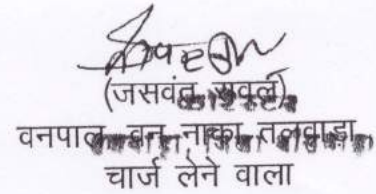 (जसवंत
वनपाल वन नाका तलवाड़ा
चार्ज लेने वाला